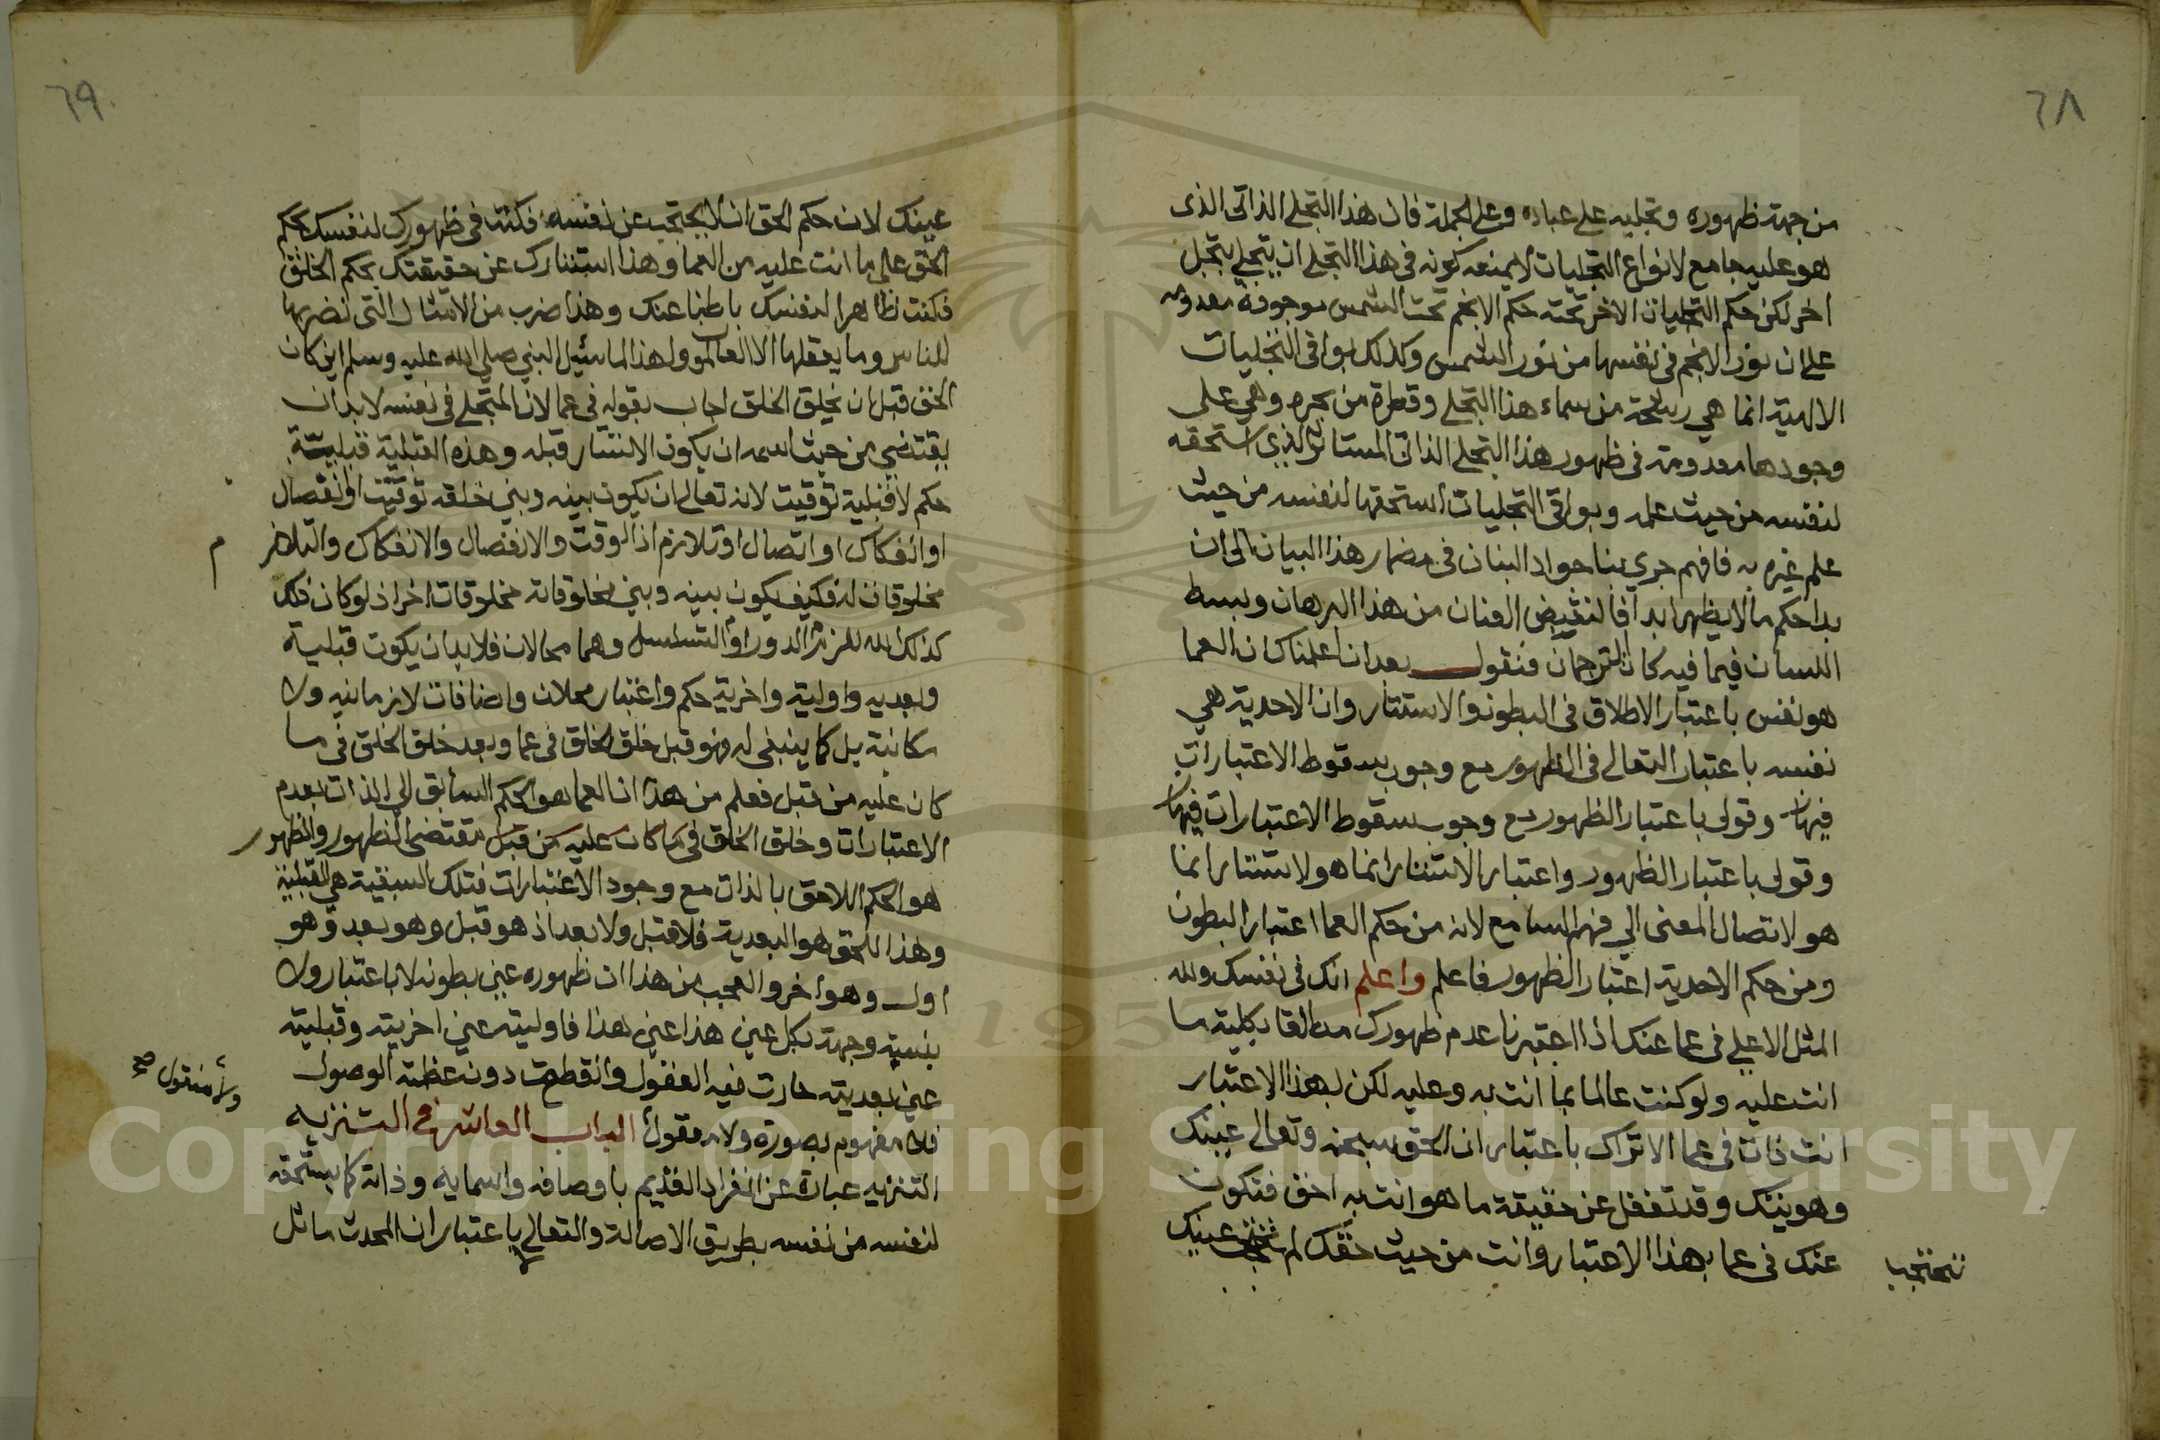 ٦٨
من جهة ظهوره وتجليه على عباده وعلى الجملة فان هذا التجلي الذاتي الذى
هو عليه جامع لانواع التجليات لا يمنعه كونه في هذا التجلي ان يتجلى بتجل
اخر لكن حكم التجليات الاخر تحته حكم الانجم تحت الشمس موجودة معدومه
على ان نور الانجم في نفسها من نور الشمس وكذلك بواقى التجليات
الالهية انما هي رشحة من سماء هذا التجلي وقطرة من بحره وهي على
وجودها معدومة في ظهور هذا التجلي الذاتي المستاثر الذي استحقه
لنفسه من حيث علمه وبواقى التجليات استحقها لنفسه من حيث
علم غيره به فافهم جري بنا جواد البنان في مضمار هذا البيان الى ان
بدا حكم ما لا يظهر ابدا فالنقبض العنان من هذا البرهان ونبسط
اللسان فيما فيه كان الترجمان فنقول بعد ان اعلمناك ان العما
هو نفس باعتبار الاطلاق في البطون والاستتار وان الاحدية هي
نفسه باعتبار التعالى في الظهور مع وجوب سقوط الاعتبارات
فيها وقولى باعتبار الظهور مع وجوب سقوط الاعتبارات فيها
وقولى باعتبار الظهور واعتبار الاستتار انما هو لاستتار انما
هو لاتصال المعنى الي فهم السامع لانه من حكم العما اعتبار البطون
ومن حكم الاحدية اعتبار الظهور فاعلم واعلم انك في نفسك ولله
المثل الاعلى في عما عنك اذا اعتبرنا عدم ظهورك بكلية ما
انت عليه ولو كنت عالما بما انت به وعليه لكن بهذا الاعتبار
انت ذات في عما الا تراك باعتبار ان الحق سبحنه وتعالى عينك
وهويتك وقد تغفل عن حقيقة ما هو انت به احق فتكون
عنك في عما بهذا الاعتبار وانت من حيث حقك لم تحتجب عينك
تحتجب
٦٩
عينك لان حكم الحق ان لا يحتجب عن نفسه فكنت في ظهورك لنفسك بحكم
الحق على ما انت عليه من العما وهذا استتارك عن حقيقتك بحكم الخلق
فكنت ظاهرا لنفسك باطنا عنك وهذا ضرب من الامثال التي نضربها
للناس وما يعقلها الا العالمون ولهذا لما سئل النبي صلى الله عليه وسلم اين كان
الحق قبل ان يخلق الخلق اجاب بقوله في عما لان المتجلي في نفسه لا بد ان
يقتضي من حيث اسمه ان يكون الاستتار قبله وهذه القبلية قبلية
حكم لا قبلية توقيت لانه تعالى ان يكون بينه وبين خلقه توقيت او انفصال
او انفكاك او اتصال او تلازم اذ الوقت والانفصال والانفكاك والتلازم
م
مخلوقات له فكيف يكون بينه وبين مخلوقاته مخلوقات اخر اذ لو كان ذلك
كذلك لله للزم الدور او التسلسل وهما محالان فلا بد ان يكون قبلية
وبعديه واولية واخرية حكم واعتبار محلان واضافات لا زمانيه ولا
مكانية بل كما ينبغى له فهو قبل خلق الخلق في عما وبعد خلق الخلق في ما
كان عليه من قبل فعلم من هذا ان العما هو الحكم السابق الى الذات بعدم
الاعتبارات وخلق الخلق في ما كان عليه من قبل مقتضى الظهور والظهور
هو الحكم اللاحق بالذات مع وجود الاعتبارات فتلك السبقية هي القبلية
وهذا اللحق هو البعدية فلا قبل ولا بعد اذ هو قبل وهو بعد وهو
اول وهو اخر والعجب من هذا ان ظهوره عين بطونه لا باعتبار ولا
بنسبة وجهة بكل عين هذا عين هذا فاوليته عين اخريته وقبليته
عين بعديته حارت فيه العقول وانقطعت دون عظمته الوصول
فلا مفهوم بصورة ولا معقول الباب العاشر في التنزيه
ولا منقول صح
التنزيه عبارة عن انفراد القديم باوصافه واسمايه وذاته كما يستحقه
لنفسه من نفسه بطريق الاصالة والتعالي باعتبار ان المحدث ماثل
Copyright © King Saud University
1957